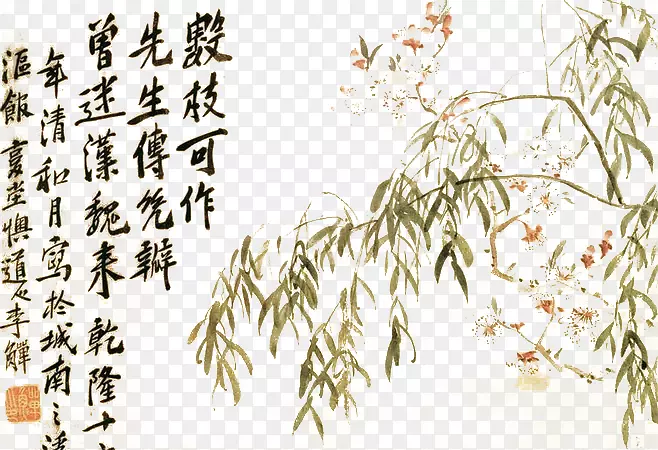 數枝可作
先生傳笑辭
曾迷漢魏來 乾隆十
年清和月寫於城南之
漚館 復堂懊道人李鱓